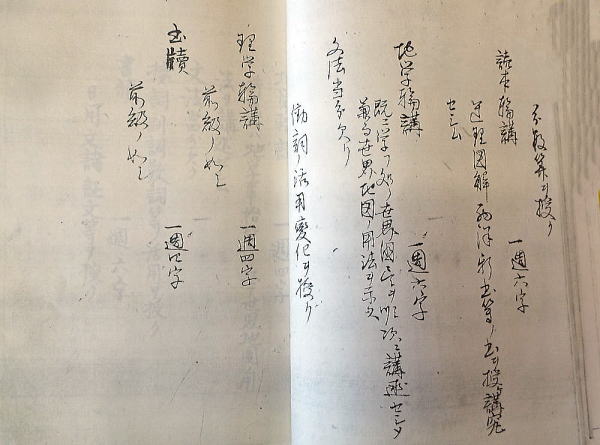 分数算ヲ授ク
読本輪講 一週六字
道理図解西洋新書等ノ書ヲ授ケ講究
セシム
地学輪講 一週六字
既ニ学フ処ノ世界国尽ヲ順次ニ講述セシメ
兼テ世界地図ノ用法ヲ示ス
文法当分欠ク
動詞ノ活用変化ヲ授ク
理学輪講 一週四字
前級ノ如シ
書牘 一週四字
前級ノ如シ